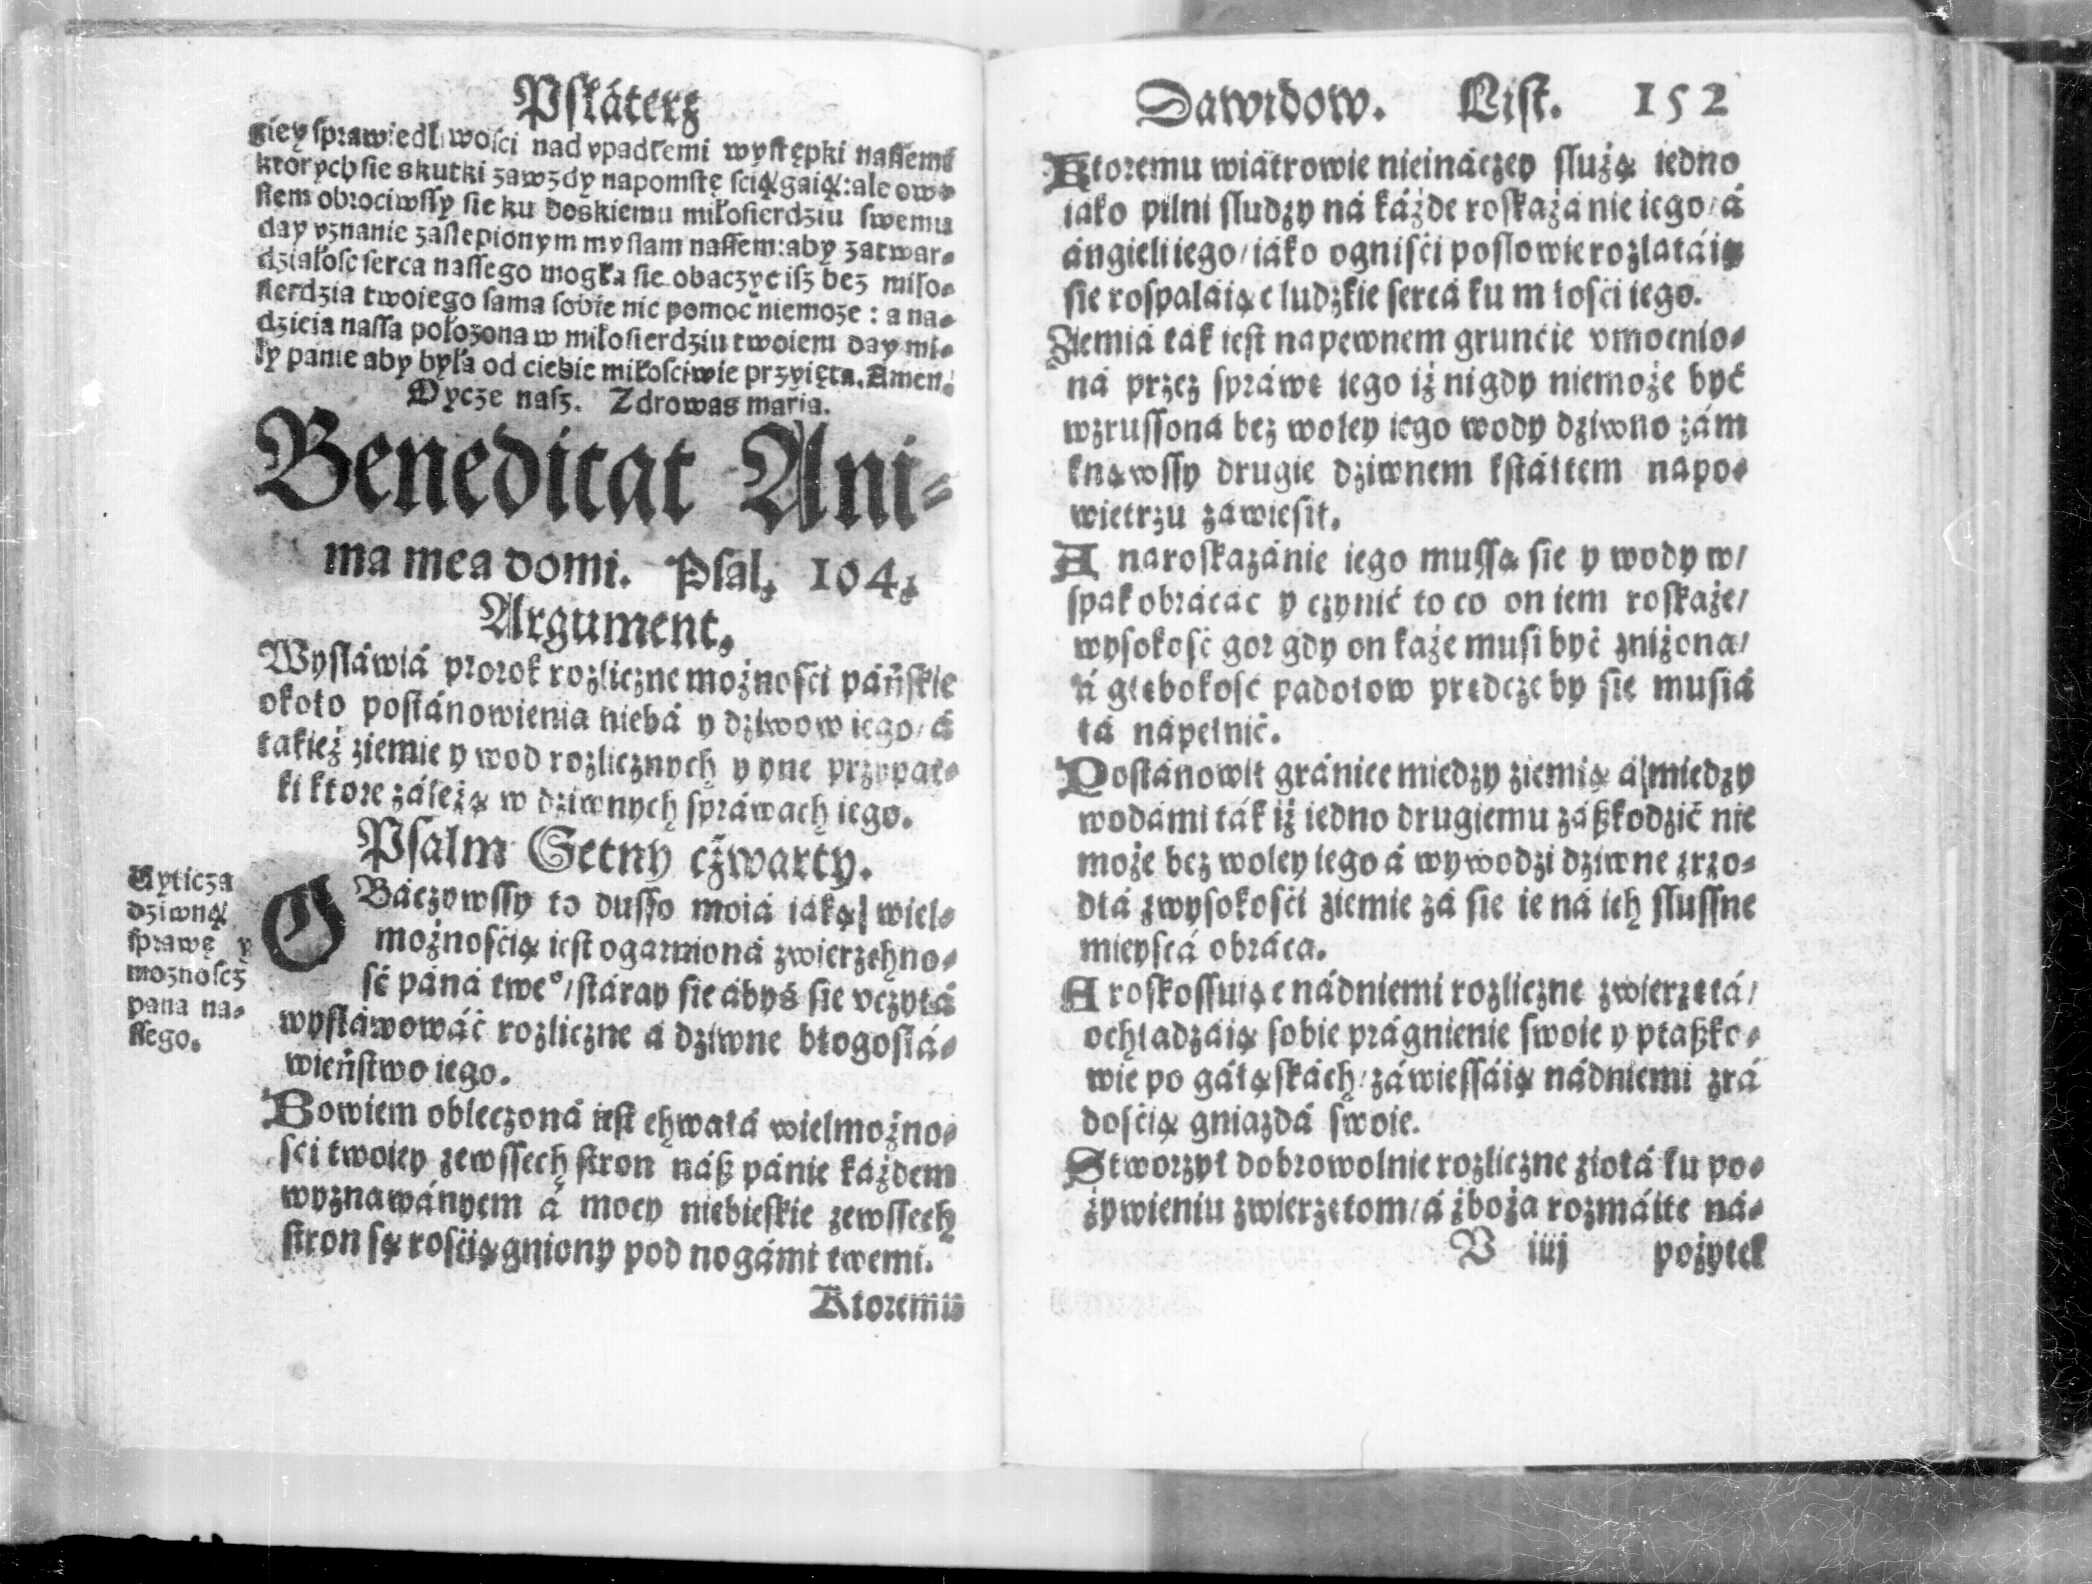 Psłáterz
kiey sprawiedliwosci nad vpadłemi występki nassemi
ktorych sie skutki zawzdy napomstę sciągaią: ale ow⸗
ssem obrociwssy sie ku boskiemu miłosierdziu swemu
day vznanie zaslepionym myslam nassem: aby zatwar⸗
działosc serca nassego mogła sie obaczyc isz bez miło⸗
sierdzia twoiego sama sobie nic pomoc niemoze: a na⸗
dzieia nassa położona w miłosierdziu twoiem day mi⸗
ły panie aby była od ciebie miłosciwie przyięta. Amen.
Oycze nasz. Zdrowas maria.
Beneditat Ani⸗
ma mea domi. Psal. 104.
Argument.
Wysláwiá prorok rozliczne możnosći páńskie
około postánowienia niebá y dziwow iego/ á
takież ziemie y wod rozlicznych y yne przypat⸗
ki ktore záleżą w dziwnych spráwach iego.
Psalm Setny cżwarty.
Wyticza
dziwną
sprawę y
moznoscz
pana na⸗
ssego.
OBáczywssy to dusso moiá iaką wiel⸗
możnosćią iest ogarnioná zwierzchno⸗
sć páná twe°/ stáray sie ábyś sie vczytá
wysláwowáć rozliczne á dziwne błogoslá⸗
wieństwo iego.
Bowiem obleczoná iest chwałá wielmożno⸗
sći twoiey zewssech stron náß pánie każdem
wyznawányem á mocy niebieskie zewssech
stron są rosćiągniony pod nogámi twemi.
Ktoremu
Dawidow. List. 152
Ktoremu wiátrowie nieináczey służą iedno
iáko pilni sludzy ná káżde roskazánie iego/ á
ángieli iego/ iáko ognisći poslowie rozlatáią
sie rospaláiąc ludzkie sercá ku m łosći iego.
Ziemiá ták iest napewnem grunćie vmocnio⸗
ná przez spráwę iego iż nigdy niemoże być
wzrussoná bez woley iego wody dziwno zám
knąwssy drugie dziwnem kstałtem napo⸗
wietrzu záwiesił.
A naroskazánie iego mussą sie y wody w/
spak obrácác y czynić to co on iem roskaże/
wysokosć gor gdy on każe musi być zniżona/
á głębokosć padołow prędcze by się musiá
łá nápełnić.
Postánowił gránice miedzy ziemią á miedzy
wodámi ták iż iedno drugiemu záßkodzić nie
może bez woley iego á wywodzi dziwne zrzo⸗
dłá zwysokosći ziemie zá sie ie ná ich slussne
mieyscá obráca.
A roskossuiąc nádniemi rozliczne zwierzętá/
ochładzáią sobie prágnienie swoie y ptaßko⸗
wie po gáłąskách/ záwiessáią nádniemi zrá
dosćią gniazdá swoie.
Stworzył dobrowolnie rozliczne ziołá ku po⸗
żywieniu zwierzętom/ á zboża rozmáite ná⸗
V iiij pożytek